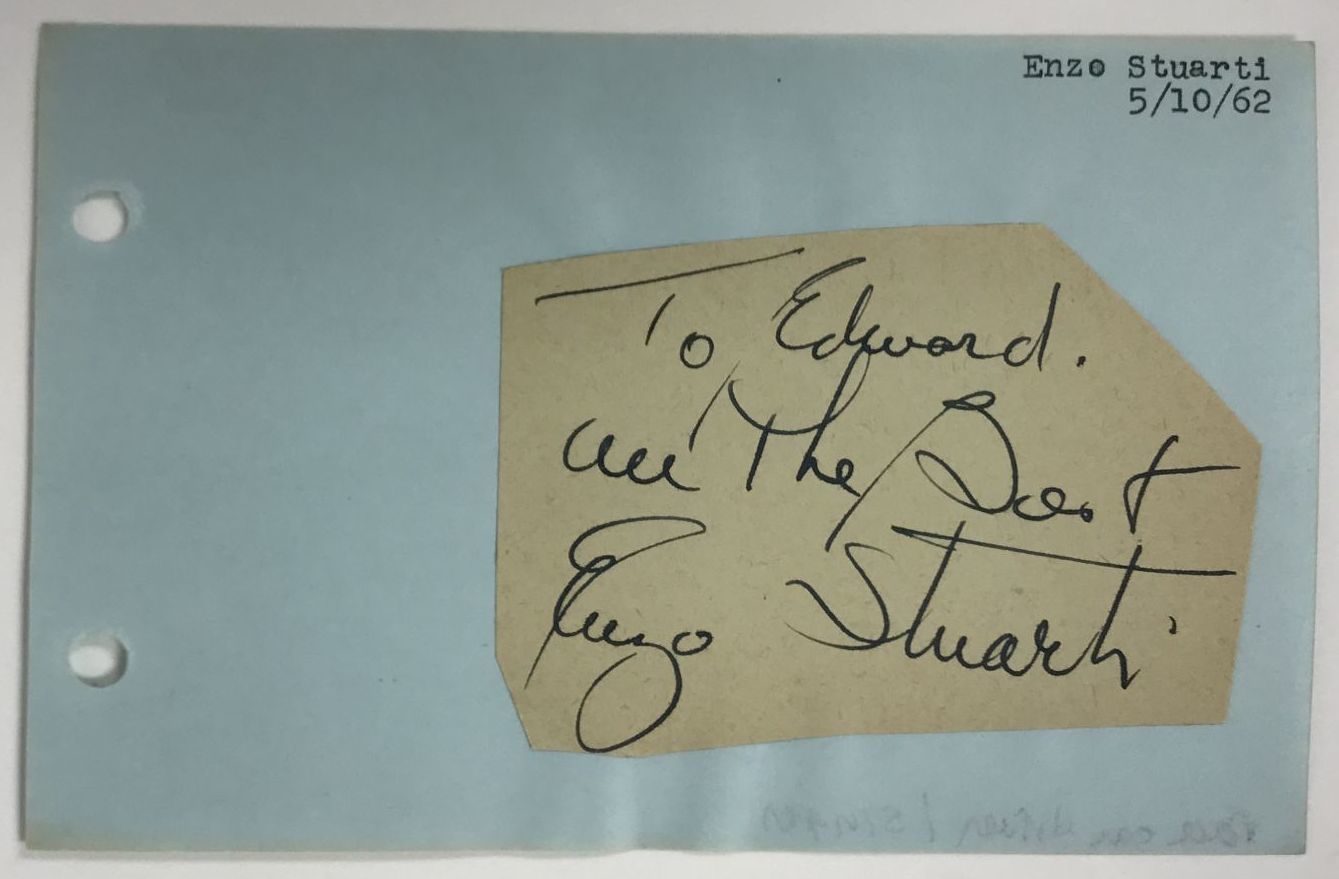 Enzo Stuarti
5/10/62
To Edward.
all The Best
Enzo Stuarti